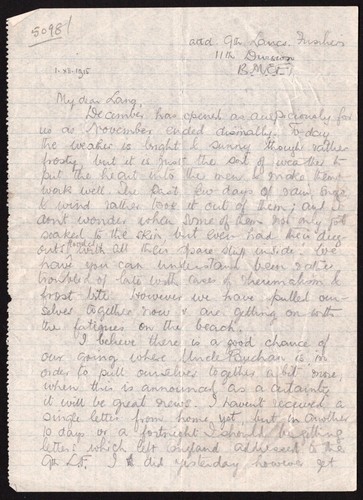 5098
attd. 9th Lancs. Fusiliers
11th Division
B.M.E.F.
1-XII-1915
My dear Lang,
December has opened as auspiciously for
us as November ended dismally. Today
the weather is bright & sunny though rather
frosty but it is just the sort of weather to
put the heart into the men & make them
work well. The past few days of rain,
& wind rather took it out of them; and I
dont wonder when some of them not only got
soaked to the skin but even had their dug
outs flooded with all their spare stuff inside. We
have you can understand been rather
troubled of late with cases of rheumatism &
frost bite. However we have pulled our-
selves together now & are getting on with
the fatigues on the beach.
I believe there is a good chance of
our going where Uncle Buchan is in
order to pull ourselves together a bit more
when this is announced as a certainty
it will be great news. I havent received a
single letter from home yet, but in another
10 days or a fortnight I should be getting
letters which left England addressed to the
9th L.F. I did yesterday however get